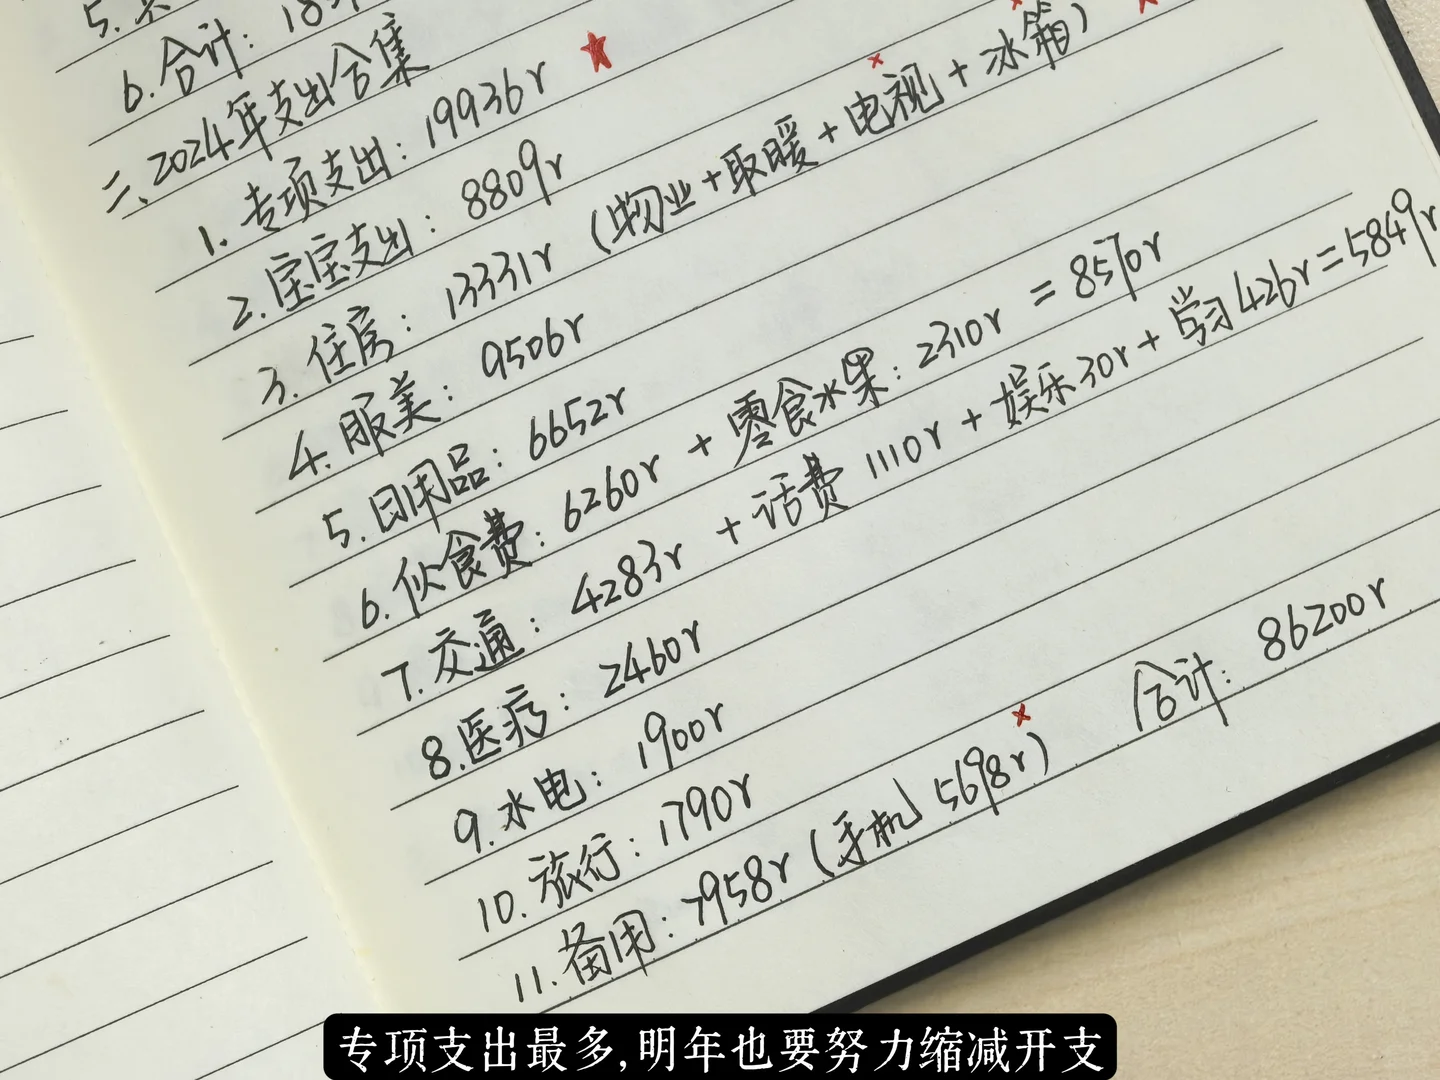 6.合计:
二、2024年支出合集
1.专项支出:19936r
2.宝宝支出:8809r
3.住房:13331r(物业+取暖+电视+冰箱)
4.服美:9506r
5.日用品:6652r
6.伙食费:6260r+零食水果:2310r=8570r
7.交通:4283r+话费1110r+娱乐30r+学习426r=5849r
8.医疗:2460r
9.水电:1900r
10.旅行:1790r
11.备用:7958r(手机5698r) 合计:86200r
专项支出最多,明年也要努力缩减开支